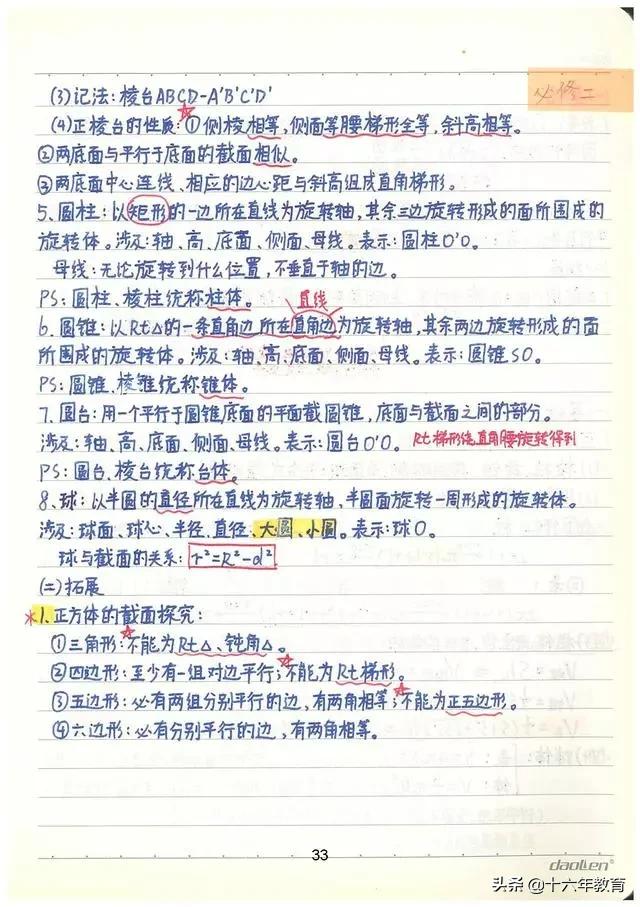 必修二
(3)记法:棱台ABCD-A'B'C'D'
(4)正棱台的性质:①侧棱相等,侧面等腰梯形全等,斜高相等。
②两底面与平行于底面的截面相似。
③两底面中心连线、相应的边心距与斜高组成直角梯形。
5、圆柱:以矩形的一边所在直线为旋转轴,其余三边旋转形成的面所围成的
旋转体。涉及:轴、高、底面、侧面、母线。表示:圆柱O'O。
母线:无论旋转到什么位置,不垂直于轴的边。
PS:圆柱、棱柱统称柱体。
直线
6、圆锥:以Rt△的一条直角边所在直角边为旋转轴,其余两边旋转形成的面
所围成的旋转体。涉及:轴、高、底面、侧面、母线。表示:圆锥SO。
PS:圆锥、棱锥统称锥体。
7、圆台:用一个平行于圆锥底面的平面截圆锥,底面与截面之间的部分。
涉及:轴、高、底面、侧面、母线。表示:圆台O'O。 Rt梯形绕直角腰旋转得到
PS:圆台、棱台统称台体。
8、球:以半圆的直径所在直线为旋转轴,半圆面旋转一周形成的旋转体。
涉及:球面、球心、半径、直径、大圆、小圆。表示:球O。
球与截面的关系:r²=R²-d²
(二)拓展
*1.正方体的截面探究:
①三角形:不能为Rt△、钝角△。
②四边形:至少有一组对边平行;不能为Rt梯形。
③五边形:必有两组分别平行的边,有两角相等;不能为正五边形。
④六边形:必有分别平行的边,有两角相等。
33
daolen®
头条@十六年教育